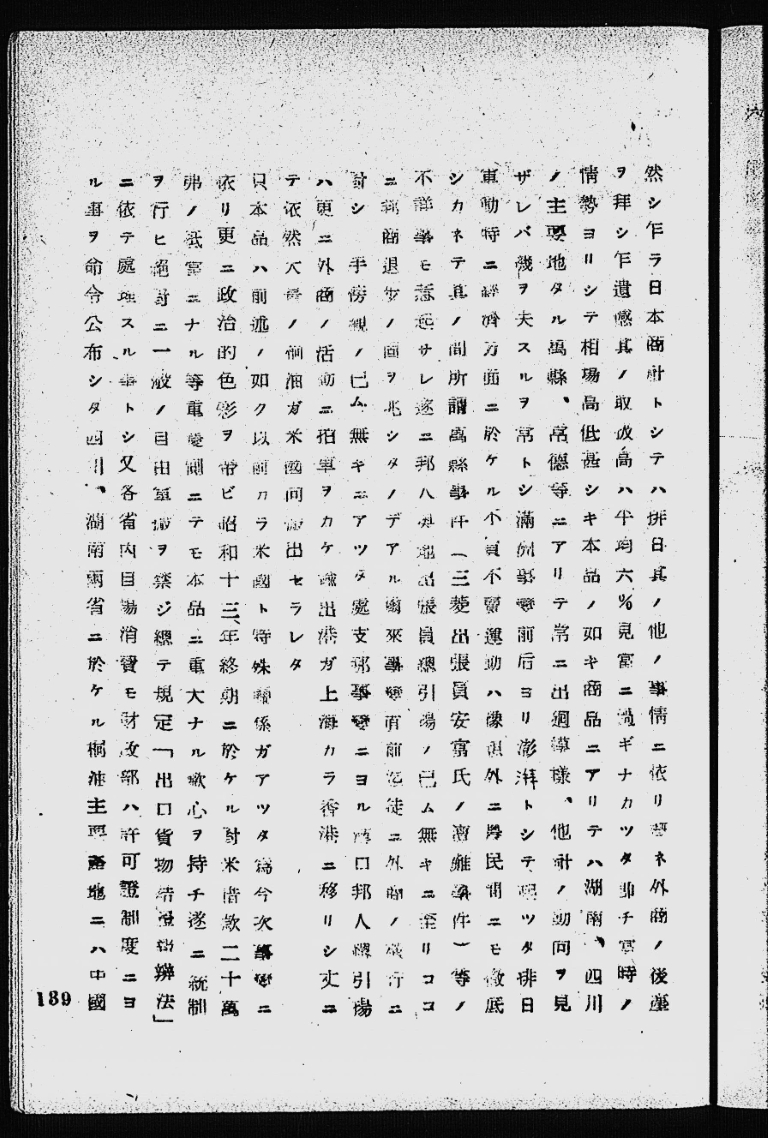 然シ乍ラ日本商社トシテハ排日其ノ他ノ事情ニ依リ概ネ外商ノ後塵
ヲ拜シ乍遺憾其ノ取扱高ハ平均六%見當ニ過ギナカツタ卽チ當時ノ
情勢ヨリシテ相場高低甚シキ本品ノ如キ商品ニアリテハ湖南、四川
ノ主要地タル萬縣、常德等ニアリテ常ニ出廻模樣、他社ノ動向ヲ見
ザレバ機ヲ失スルヲ常トシ滿洲事變前后ヨリ澎湃トシテ現ツタ排日
運動特ニ經濟方面ニ於ケル不買不賣運動ハ豫想外ニ農民間ニモ徹底
シカネテ其ノ間所謂萬縣事件(三菱出張員安富氏ノ遭難事件)等ノ
不祥事モ惹起サレ遂ニ邦人奧地出張員總引揚ノ已ム無キニ至リココ
ニ邦商退步ノ因ヲ兆シタノデアル爾來事變直前迄徒ニ外商ノ橫行ニ
對シ手傍觀ノ已ム無キニアツタ處支那事變ニヨル漢口邦人總引揚
ハ更ニ外商ノ活動ニ拍車ヲカケ輸出港ガ上海カラ香港ニ移リシ丈ニ
テ依然大量ノ桐油ガ米國向輸出セラレタ
只本品ハ前述ノ如ク以前カラ米國ト特殊關係ガアツタ爲今次事變ニ
依リ更ニ政治的色彩ヲ帶ビ昭和十三、年終期ニ於ケル對米借款二十萬
弗ノ抵當ニナル等重慶側ニテモ本品ニ重大ナル歡心ヲ持チ遂ニ統制
ヲ行ヒ絕對ニ一般ノ自由買付ヲ禁ジ總テ規定「出口貨物結滙辨法」
ニ依テ處理スル事トシ又各省內自場消費モ財政部ハ許可證制度ニヨ
ル事ヲ命令公布シタ四川、湖南兩省ニ於ケル桐油主要產地ニハ中國
139